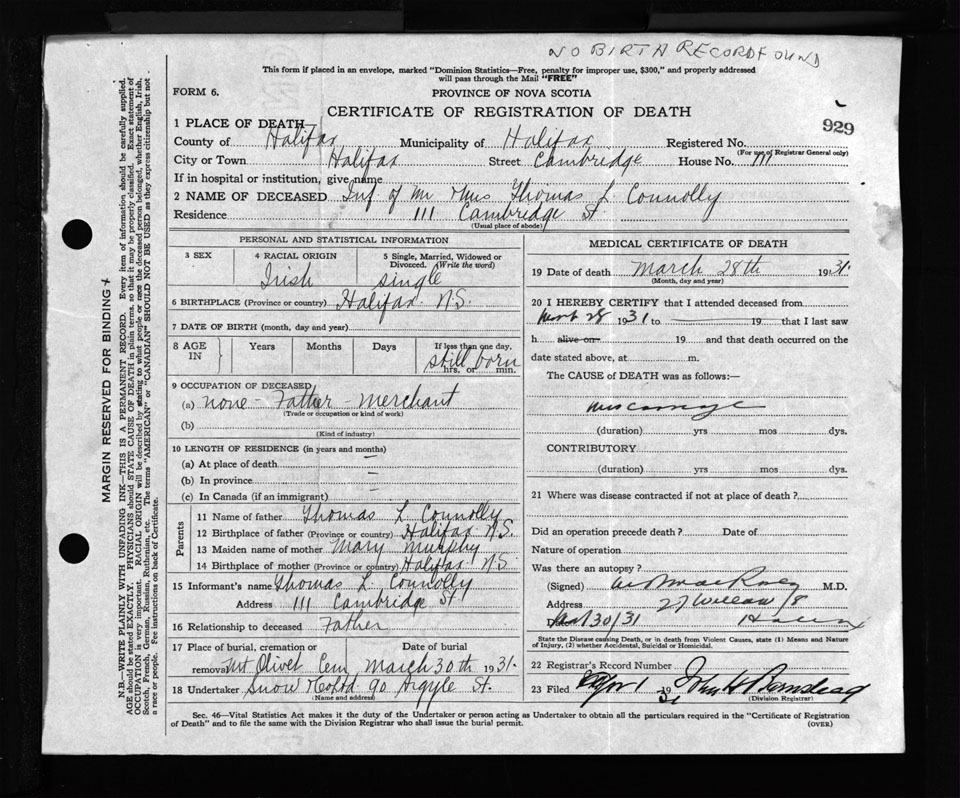 NO BIRTH RECORD FOUND
This form if placed in an envelope, marked "Dominion Statistics—Free, penalty for improper use, $300," and properly addressed
will pass through the Mail "FREE"
FORM 6.
PROVINCE OF NOVA SCOTIA
CERTIFICATE OF REGISTRATION OF DEATH
929
1 PLACE OF DEATH
County of Halifax Municipality of Halifax Registered No.
(For use of Registrar General only)
City or Town Halifax Street Cambridge House No. 111
If in hospital or institution, give name
2 NAME OF DECEASED Inf of Mr Mrs Thomas L Connolly
Residence 111 Cambridge St.
(Usual place of abode)
PERSONAL AND STATISTICAL INFORMATION
3 SEX
4 RACIAL ORIGIN Irish
5 Single, Married, Widowed or Divorced. (Write the word) single
6 BIRTHPLACE (Province or country) Halifax N.S.
7 DATE OF BIRTH (month, day and year)
8 AGE IN Years Months Days If less than one day, still born hrs. or min.
9 OCCUPATION OF DECEASED
(a) none - Father - Merchant
(Trade or occupation or kind of work)
(b)
(Kind of industry)
10 LENGTH OF RESIDENCE (in years and months)
(a) At place of death —
(b) In province —
(c) In Canada (if an immigrant) —
Parents
11 Name of father Thomas L. Connolly
12 Birthplace of father (Province or country) Halifax N.S.
13 Maiden name of mother Mary Murphy
14 Birthplace of mother (Province or country) Halifax N.S
15 Informant's name Thomas L. Connolly
Address 111 Cambridge St
16 Relationship to deceased Father
17 Place of burial, cremation or Date of burial
removal Mt Olivet Cem March 30th 1931.
18 Undertaker Snow & Co Ltd 90 Argyle St.
(Name and address)
MEDICAL CERTIFICATE OF DEATH
19 Date of death March 28th 1931.
(Month, day and year)
20 I HEREBY CERTIFY that I attended deceased from
28 1931 to 19 that I last saw
h alive on 19 and that death occurred on the
date stated above, at m.
The CAUSE of DEATH was as follows:—
miscarriage
(duration) yrs mos dys.
CONTRIBUTORY
(duration) yrs mos dys.
21 Where was disease contracted if not at place of death?
Did an operation precede death? Date of
Nature of operation
Was there an autopsy?
(Signed) M.D.
Address 27 Willow St
30/31 Halifax
State the Disease causing Death, or in death from Violent Causes, state (1) Means and Nature
of Injury, (2) whether Accidental, Suicidal or Homicidal.
22 Registrar's Record Number
23 Filed Apr 1 1931 John H Barnstead
(Division Registrar)
Sec. 46—Vital Statistics Act makes it the duty of the Undertaker or person acting as Undertaker to obtain all the particulars required in the "Certificate of Registration
of Death" and to file the same with the Division Registrar who shall issue the burial permit.
(OVER)
MARGIN RESERVED FOR BINDING
N.B.—WRITE PLAINLY WITH UNFADING INK—THIS IS A PERMANENT RECORD. Every item of information should be carefully supplied.
AGE should be stated EXACTLY. PHYSICIANS should STATE CAUSE OF DEATH in plain terms, so that it may be properly classified. Exact statement of
OCCUPATION is very important. RACIAL ORIGIN will be described by stating to what people or race the deceased person belonged, whether English, Irish,
Scotch, French, German, Russian, Ruthenian, etc. The terms "AMERICAN" or "CANADIAN" SHOULD NOT BE USED as they express citizenship but not
a race or people. Fee instructions on back of Certificate.